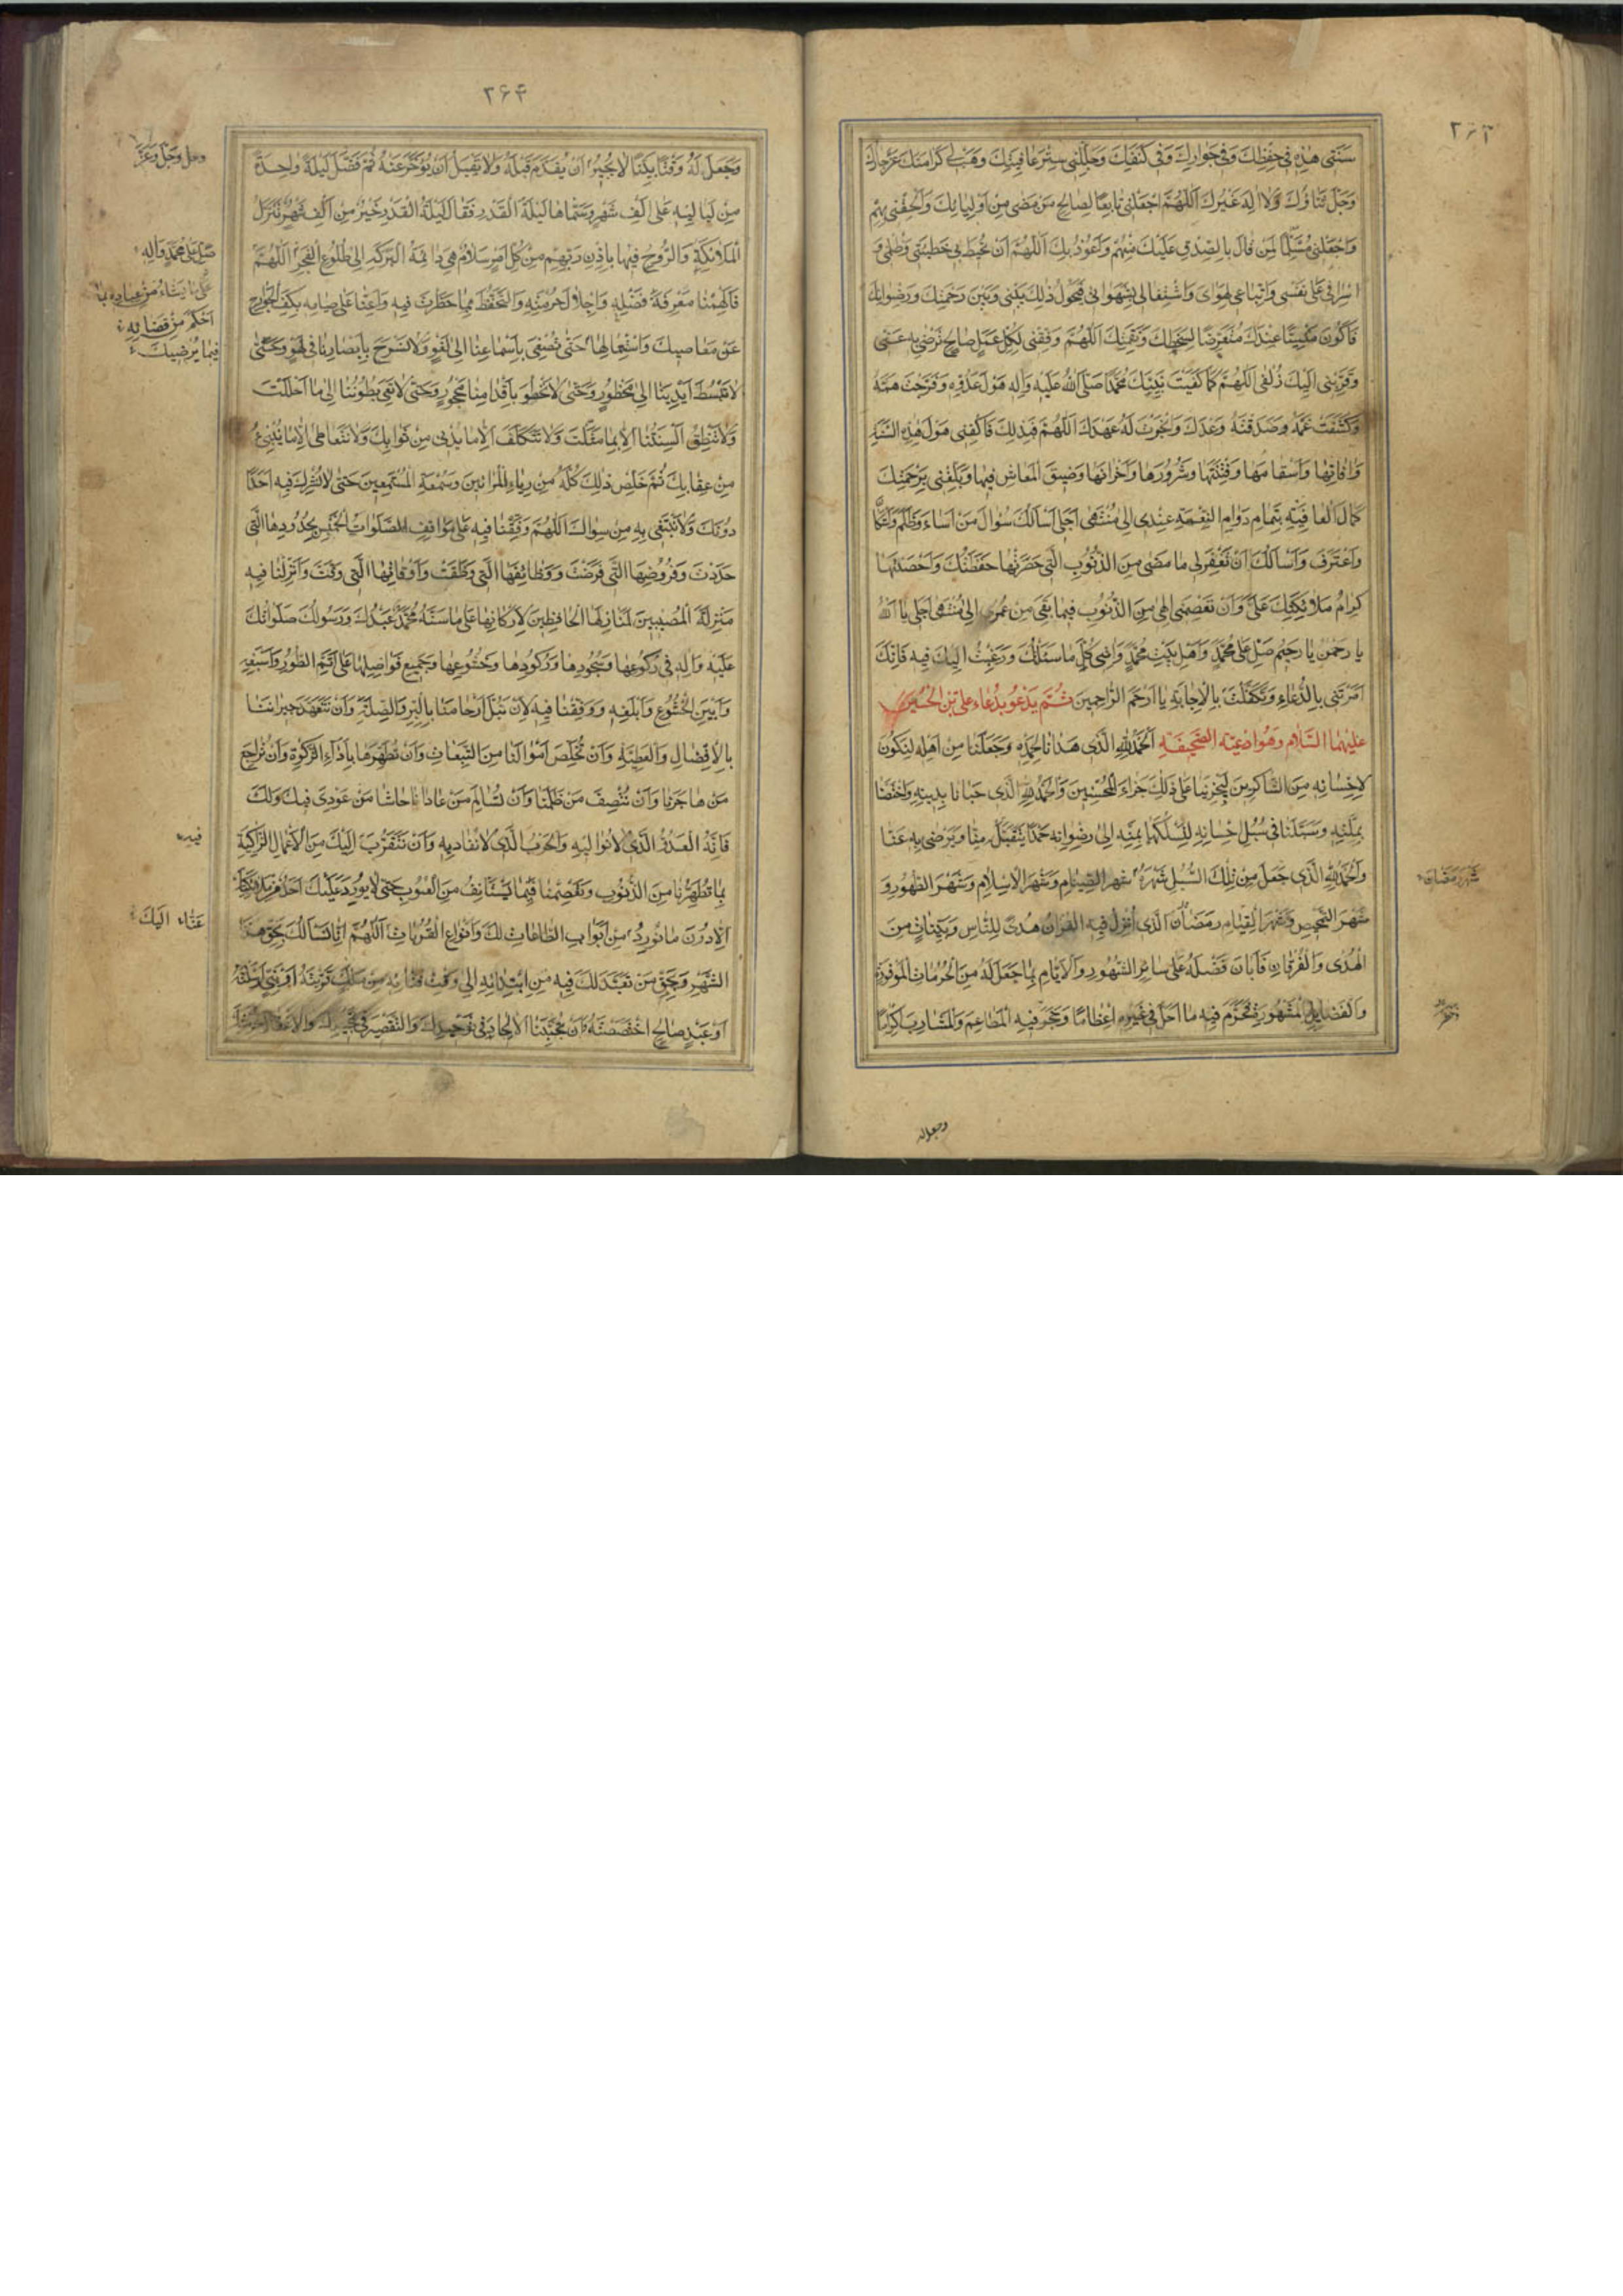 ۲۶۳
سَنَتی هٰذِهِ فی حِفْظِكَ وَفی جِوارِكَ وَفی كَنَفِكَ وَجَلِّلْنی سِتْرَ عافِیَتِكَ وَهَبْ لی كَرامَتَكَ عَزَّ جارُكَ
وَجَلَّ ثَناؤُكَ وَلا اِلهَ غَیْرُكَ اَللّهُمَّ اجْعَلْنی تابِعًا لِصالِحِ مَنْ مَضی مِنْ اَوْلِیائِكَ وَاَلْحِقْنی بِهِمْ
وَاجْعَلْنی مُسَلِّمًا لِمَنْ قالَ بِالصِّدْقِ عَلَیْكَ مِنْهُمْ وَاَعُوذُ بِكَ اَللّهُمَّ اَنْ تُحیطَ بی خَطیئَتی وَظُلْمی وَ
اِسْرافی عَلی نَفْسی وَاتِّباعی لِهَوایَ وَاشْتِغالی بِشَهَواتی فَیَحُولُ ذلِكَ بَیْنی وَبَیْنَ رَحْمَتِكَ وَرِضْوانِكَ
فَاَكُونَ مَنْسِیًّا عِنْدَكَ مُتَعَرِّضًا لِسَخَطِكَ وَنَقِمَتِكَ اَللّهُمَّ وَفِّقْنی لِكُلِّ عَمَلٍ صالِحٍ تَرْضی بِهِ عَنّی
وَقَرِّبْنی اِلَیْكَ زُلْفی اَللّهُمَّ كَما كَفَیْتَ نَبِیَّكَ مُحَمَّدًا صَلَّی اللهُ عَلَیْهِ وَآلِهِ هَوْلَ عَدُوِّهِ وَفَرَّجْتَ هَمَّهُ
وَكَشَفْتَ غَمَّهُ وَصَدَقْتَهُ وَعْدَكَ وَاَنْجَزْتَ لَهُ عَهْدَكَ اَللّهُمَّ فَبِذلِكَ فَاكْفِنی هَوْلَ هذِهِ السَّنَةِ
وَآفاتِها وَاَسْقامَها وَفِتْنَتَها وَشُرُورَها وَاَحْزانَها وَضیقَ الْمَعاشِ فیها وَبَلِّغْنی بِرَحْمَتِكَ
كَمالَ الْعافِیَةِ بِتَمامِ دَوامِ النِّعْمَةِ عِنْدی اِلی مُنْتَهی اَجَلی اَسْاَلُكَ سُؤالَ مَنْ اَساءَ وَظَلَمَ وَاسْتَكانَ
وَاعْتَرَفَ وَاَسْاَلُكَ اَنْ تَغْفِرَ لی ما مَضی مِنَ الذُّنُوبِ الَّتی حَصَرَتْها حَفَظَتُكَ وَاَحْصَتْها
كِرامُ مَلائِكَتِكَ عَلَیَّ وَاَنْ تَعْصِمَنی اِلهی مِنَ الذُّنُوبِ فیما بَقِیَ مِنْ عُمْری اِلی مُنْتَهی اَجَلی یا اَللهُ
یا رَحْمٰنُ یا رَحیمُ صَلِّ عَلی مُحَمَّدٍ وَاَهْلِ بَیْتِ مُحَمَّدٍ وَآتِنی كُلَّ ما سَئَلْتُكَ وَرَغِبْتُ اِلَیْكَ فیهِ فَاِنَّكَ
اَمَرْتَنی بِالدُّعاءِ وَتَكَفَّلْتَ بِالْاِجابَةِ یا اَرْحَمَ الرّاحِمینَ ثُمَّ یَدْعُو بِدُعاءِ عَلِیِّ بْنِ الْحُسَیْنِ
عَلَیْهِمَا السَّلامُ وَهُوَ اَدْعِیَة الصَّحیفَةِ اَلْحَمْدُ لِلّهِ الَّذی هَدانا لِحَمْدِهِ وَجَعَلَنا مِنْ اَهْلِهِ لِنَكُونَ
لِاِحْسانِهِ مِنَ الشّاكِرینَ لِیَجْزِیَنا عَلی ذلِكَ جَزاءَ الْمُحْسِنینَ وَالْحَمْدُ لِلّهِ الَّذی حَبانا بِدینِهِ وَاخْتَصَّنا
بِمِلَّتِهِ وَسَبَّلَنا فی سُبُلِ اِحْسانِهِ لِنَسْلُكَها بِمَنِّهِ اِلی رِضْوانِهِ حَمْدًا یَتَقَبَّلُهُ مِنّا وَیَرْضی بِهِ عَنّا
وَالْحَمْدُ لِلّهِ الَّذی جَعَلَ مِنْ تِلْكَ السُّبُلِ شَهْرَهُ شَهْرَ الصِّیامِ وَشَهْرَ الْاِسْلامِ وَشَهْرَ الطَّهُورِ وَ
شَهْرَ رَمَضانَ
شَهْرَ التَّمْحیصِ وَشَهْرَ الْقِیامِ رَمَضانَ الَّذی اُنْزِلَ فیهِ الْقُرْآنُ هُدًی لِلنّاسِ وَبَیِّناتٍ مِنَ
الْهُدی وَالْفُرْقانِ فَاَبانَ فَضْلَهُ عَلی سائِرِ الشُّهُورِ وَالْاَیّامِ بِما جَعَلَ لَهُ مِنَ الْحُرُماتِ الْمَوْفُورَةِ
وَالْفَضائِلِ الْمَشْهُورَةِ فَحَرَّمَ فیهِ ما اَحَلَّ فی غَیْرِهِ اِعْظامًا وَحَجَرَ فیهِ الْمَطاعِمَ وَالْمَشارِبَ اِكْرامًا
وجعل له
۲۶۴
وَجَعَلَ لَهُ وَقْتًا بَیِّنًا لا یُجیزُ اَنْ یُقَدَّمَ قَبْلَهُ وَلا یَقْبَلُ اَنْ یُؤَخَّرَ عَنْهُ ثُمَّ فَضَّلَ لَیْلَةً واحِدَةً
مِنْ لَیالیهِ عَلی اَلْفِ شَهْرٍ وَسَمّاها لَیْلَةَ الْقَدْرِ فَقالَ لَیْلَةُ الْقَدْرِ خَیْرٌ مِنْ اَلْفِ شَهْرٍ تَنَزَّلُ
الْمَلائِكَةُ وَالرُّوحُ فیها بِاِذْنِ رَبِّهِمْ مِنْ كُلِّ اَمْرٍ سَلامٌ هِیَ دائِمَةُ الْبَرَكَةِ اِلی طُلُوعِ الْفَجْرِ اَللّهُمَّ
صَلِّ عَلی مُحَمَّدٍ وَآلِهِ
عَلی مَنْ یَشاءُ مِنْ عِبادِهِ بِما
اَحْكَمَ مِنْ قَضائِهِ
فَاَلْهِمْنا مَعْرِفَةَ فَضْلِهِ وَاِجْلالَ حُرْمَتِهِ وَالتَّحَفُّظَ مِمّا حَظَرْتَ فیهِ وَاَعِنّا عَلی صِیامِهِ بِكَفِّ الْجَوارِحِ
عَنْ مَعاصیكَ وَاسْتِعْمالِها حَتّی لا نُصْغِیَ بِاَسْماعِنا اِلی لَغْوٍ وَلا نُسْرِحَ بِاَبْصارِنا فی لَهْوٍ وَحَتّی
فیما یُرْضیكَ
لا نَبْسُطَ اَیْدِیَنا اِلی مَحْظُورٍ وَحَتّی لا نَخْطُوَ بِاَقْدامِنا مَحْجُورٍ وَحَتّی لا تَعِیَ بُطُونُنا اِلی ما اَحْلَلْتَ
وَلا تَنْطِقَ اَلْسِنَتُنا اِلّا بِما مَثَّلْتَ وَلا نَتَكَلَّفَ اِلّا ما یُدْنی مِنْ ثَوابِكَ وَلا نَتَعاطی اِلّا ما
مِنْ عِقابِكَ ثُمَّ خَلِّصْ ذلِكَ كُلَّهُ مِنْ رِیاءِ الْمُرائینَ وَسُمْعَةِ الْمُسْتَمِعینَ حَتّی لا نُشْرِكَ فیهِ اَحَدًا
دُونَكَ وَلا نَبْتَغی بِهِ مِنْ سِواكَ اَللّهُمَّ وَقِّفْنا فیهِ عَلی مَواقِفِ الصَّلَواتِ الْخَمْسِ بِحُدُودِهَا الَّتی
حَدَّدْتَ وَفُرُوضِهَا الَّتی فَرَضْتَ وَوَظائِفِهَا الَّتی وَظَّفْتَ وَاَوْقاتِهَا الَّتی وَقَّتَّ وَاَنْزِلْنا فیهِ
مَنْزِلَةَ الْمُصیبینَ لِمَنازِلِهَا الْحافِظینَ لِاَرْكانِها عَلی ما سَنَّهُ مُحَمَّدٌ عَبْدُكَ وَرَسُولُكَ صَلَواتُكَ
عَلَیْهِ وَآلِهِ فی رُكُوعِها وَسُجُودِها وَرُكُودِها وَخُشُوعِها وَجَمیعِ فَواضِلِها عَلی اَتَمِّ الطَّهُورِ وَاَسْبَغِهِ
وَاَبْیَنِ الْخُشُوعِ وَاَبْلَغِهِ وَوَفِّقْنا فیهِ لِاَنْ نَبُلَّ اَرْحامَنا بِالْبِرِّ وَالصِّلَةِ وَاَنْ نَتَعَهَّدَ جیرانَنا
بِالْاِفْضالِ وَالْعَطِیَّةِ وَاَنْ نُخَلِّصَ اَمْوالَنا مِنَ التَّبِعاتِ وَاَنْ نُطَهِّرَها بِاَداءِ الزَّكوةِ وَاَنْ نُراجِعَ
مَنْ هاجَرَنا وَاَنْ نُنْصِفَ مَنْ ظَلَمَنا وَاَنْ نُسالِمَ مَنْ عادانا حاشا مَنْ عُودِیَ فیكَ وَلَكَ
فَاِنَّهُ الْعَدُوُّ الَّذی لا نُوالیهِ وَالْحَرْبُ الَّذی لا نُصافیهِ وَاَنْ نَتَقَرَّبَ اِلَیْكَ مِنَ الْاَعْمالِ الزّاكِیَةِ
فیه
بِما تُطَهِّرُنا مِنَ الذُّنُوبِ وَتَعْصِمُنا فیما نَسْتَأْنِفُ مِنَ الْعُیُوبِ حَتّی لا یُورِدَ عَلَیْكَ اَحَدٌ مِنْ مَلائِكَتِكَ
اِلّا دُونَ ما نُورِدُ مِنْ اَبْوابِ الطّاعاتِ لَكَ وَاَنْواعِ الْقُرُباتِ اَللّهُمَّ اِنّا نَسْاَلُكَ بِحَقِّ هذَا
اِلَیْكَ
الشَّهْرِ وَبِحَقِّ مَنْ تَعَبَّدَ لَكَ فیهِ مِنِ ابْتِدائِهِ اِلی وَقْتِ فَنائِهِ مِنْ مَلَكٍ قَرَّبْتَهُ اَوْ نَبِیٍّ اَرْسَلْتَهُ
اَوْ عَبْدٍ صالِحٍ اخْتَصَصْتَهُ اَنْ تُجَنِّبَنَا الْاِلْحادَ فی تَوْحیدِكَ وَالتَّقْصیرَ فی